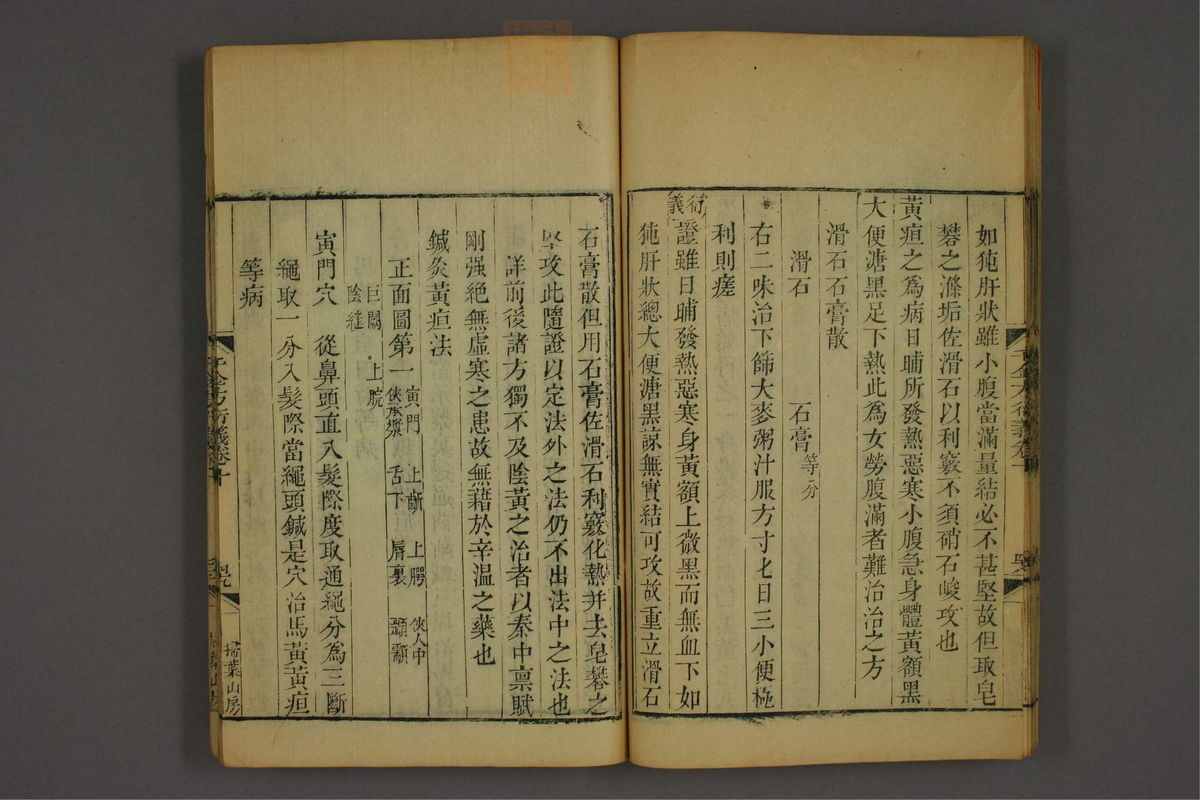 如㹠肝狀雖小腹當滿量結必不甚堅故但取皂
礬之滌垢佐滑石以利竅不須硝石峻攻也
黃疸之爲病日晡所發熱惡寒小腹急身體黃額黑
大便溏黑足下熱此爲女勞腹滿者難治治之方
滑石石膏散
滑石 石膏等分
右二味治下篩大麥粥汁服方寸匕日三小便極
利則瘥
衍義證雖日晡發熱惡寒身黃額上微黑而無血下如
㹠肝狀總大便溏黑諒無實結可攻故重立滑石
石膏散但用石膏佐滑石利竅化熱并去皂礬之
堅攻此隨證以定法外之法仍不出法中之法也
詳前後諸方獨不及陰黃之治者以秦中禀賦
剛强絶無虛寒之患故無藉於辛溫之藥也
鍼灸黃疸法
正面圖第一寅門 上齗 上腭 俠人中
俠承漿 舌下 脣裏 顴䪼
巨闕 上脘
陰縫
寅門穴 從鼻頭直入髮際度取通繩分爲三斷
繩取一分入髮際當繩頭鍼是穴治馬黃黃疸
等病
千金方衍義卷十
掃葉山房